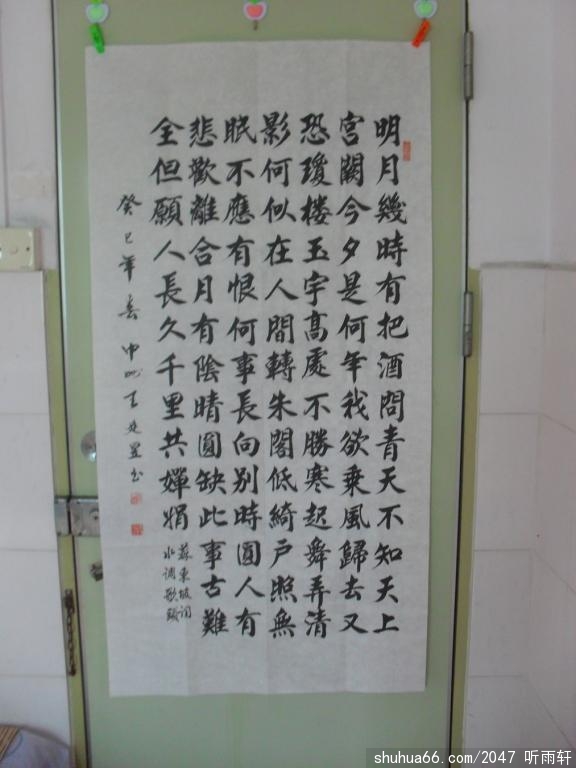 明月幾時有把酒問青天不知天上
宮闕今夕是何年我欲乘風歸去又
恐瓊楼玉宇髙處不勝寒起舞弄清
影何似在人間轉朱閣低綺户照無
眠不應有恨何事長向别時圓人有
悲歡離合月有陰晴圓缺此事古難
全但願人長久千里共嬋娟
蘇東坡词
水调歌頭
癸巳年春中山王书
shuhua66.com/2047 听雨轩